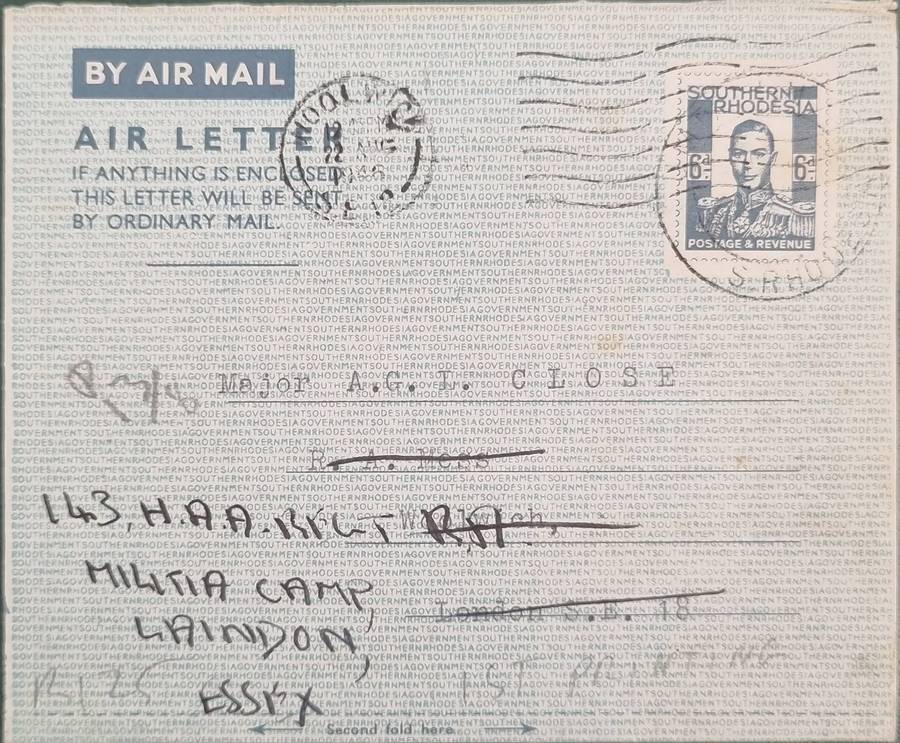 BY AIR MAIL
AIR LETTER
IF ANYTHING IS ENCLOSED
THIS LETTER WILL BE SENT
BY ORDINARY MAIL.
SOUTHERN
RHODESIA
6d 6d
POSTAGE & REVENUE
S. RHODESIA
Major A.G.L. CLOSE
R. A. Mess
Woolwich,
143, H.A.A. REGT RA
MILITIA CAMP,
London S.E. 18
LAINDON,
1ST PRINTING
R125
ESSEX
Second fold here